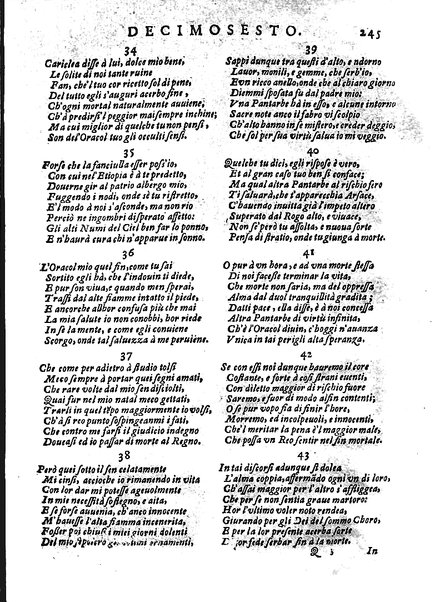 DECIMOSESTO. 245
34
Cariclea disse à lui, dolce mio bene,
Le solite di noi tante ruine
Fan, che'l tuo cor ricetto sol di pene,
Del tutto egli s'auguri acerbo fine,
Ch'ogni mortal naturalmente auuiene,
Ch'à predirsi'l peggior mai sempre inchine;
Ma cui miglior di quel che tu non pensi,
Son de l'Oracol tuo gli occulti sensi.
35
Forse che la fanciulla esser poss'io,
Con cui nel'Etiopia è à te predetto,
Douerne gir al patrio albergo mio,
Fuggendo i nodi, onde tù sì ristretto;
E'l modo à noi s'asconde, ma non rio
Perciò ne ingombri disperato affetto:
Gli alti Numi del Ciel ben far lo ponno,
E n'haurà cura chi n'apparue in sonno.
36
L'Oracol mio quel fin, come tu sai
Sortito egli hà, che l'indouin ti diede,
E pur son viua, e quando men sperai,
Trassi dal alte fiamme intatto il piede,
E ancorche alhor confusa più che mai
La mia salute io non conobbi, hor riede
In se la mente, e come egli conuiene
Scorgo, onde tal saluezza à me peruiene.
37
Che come per adietro à studio tolsi
Meco sempre à portar quei segni amati,
Che rare volte dal mio sen disciolti,
Quai fur nel mio natal meco gettati,
Trarli in quel tẽpo maggiormente io volsi,
Ch'à sì reo punto sospingeanmi i fati,
Che contro me farsi il giudicio indegno
Doueasi ed io passar di morte al Regno.
38
Però qui sotto il sen celatamente
Mi cinsi, accioche io rimanendo in vita
Con lor dar mi potesse ageuolmente
In mie necessità sostegno, e aita,
E se forse auuenia, ch'anco innocente
M'hauesse l'alta fiamma incenerita,
Fosser poi chiusi i miei giorni dolenti
Del mio sepolcro gli vltimi ornamenti,
39
Sappi dunque tra questi d'alto, e adorno
Lauor, monili, e gemme, che serb'io,
Evn ricco anello, onde che al chiaro giorno
Diemmi sposata fu dal padre mio;
Vna Pantarbe hà in esso, e alcune intorno
Sacre note anco il fabro vi scolpio
Ch'alto banno in se mistero, e creder deggio,
Che sol per sua virtù salua io mi veggio.
40
Quelche tu dici, egli rispose è vero,
Et al gran caso tuo ben si conface;
Ma qual altra Pantarbe al rischio fero
Ti saluarà, che t'apparecchia Arsace,
C'hauendo inuitta già l'impeto altero
Superato dal Rogo alto, e viuace,
Non se' però tu assolta, e nuoua sorte
Pensa di stratio, onde tu giunga à morte.
41
O pur à vn hora, e ad vna morte stessa
Di noi facesse terminar la vita,
Che morte non faria, ma del oppressa
Alma dal duol tranquillità gradita;
Datti pace, ella disse, è à noi concessa
Altra Pantarbe di virtù infinita,
Ch'è l'Oracol diuin, c'hoggi n'auanza
Vnica in tai perigli alta speranza.
42
Se con essi noi dunque hauremo il core
Costante, e forte à così strani euenti,
Con diletto maggior di rischio fuore
Saremo, e fuor di modo alfin contenti;
O se pur vopo fia di finir l'hore,
Morremo, ed incolpeuoli, e innocenti,
Che'l meritar la pena è'l maggior male,
Che possa vn Reo sentir nel fin mortale.
43
In tai discorsi adunque si dolea
L'alma coppia, affermãdo ogni vn di loro,
Ch'assai maggior per l'altro s'affliggea,
Che per se non sentia graue martoro:
Hor l'vltimo voler noto rendea,
Giurando per gli Dei del sommo Choro,
E per la lor presente acerba sorte
D'[..]or fede serbar fin à la morte.
Q 3 In